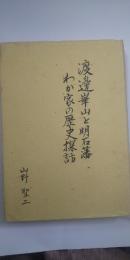 渡邉崋山と明石藩
わが家の歴史探訪
山野 聖二